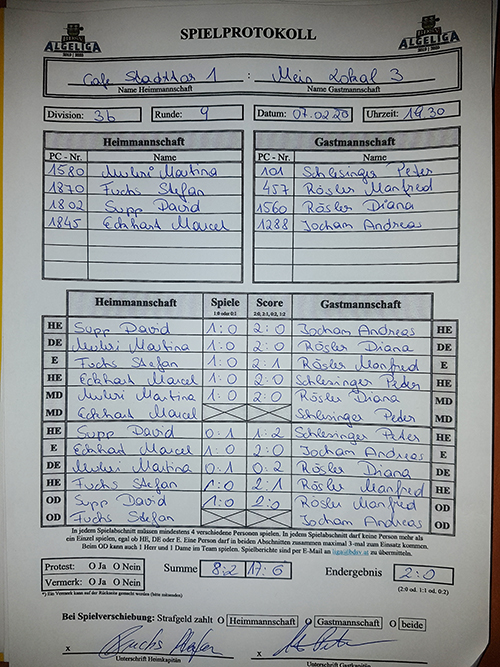 ALGELIGA SPIELPROTOKOLL ALGELIGA
Cafe Stadttor 1 : Mein Lokal 3
Name Heimmannschaft Name Gastmannschaft
Division: 3b Runde: 9 Datum: 07.02.20 Uhrzeit: 19.30
Heimmannschaft Gastmannschaft
PC - Nr. Name PC - Nr. Name
1580 Muhri Martina 101 Schlesinger Peter
1870 Fuchs Stefan 457 Rösler Manfred
1802 Supp David 1560 Rösler Diana
1845 Eckhart Marcel 1288 Jocham Andreas
Heimmannschaft Spiele Score Gastmannschaft
1:0 oder 0:1 2:0, 2:1, 0:2, 1:2
HE Supp David 1:0 2:0 Jocham Andreas HE
DE Muhri Martina 1:0 2:0 Rösler Diana DE
E Fuchs Stefan 1:0 2:1 Rösler Manfred E
HE Eckhart Marcel 1:0 2:0 Schlesinger Peter HE
MD Muhri Martina 1:0 2:0 Rösler Diana MD
MD Eckhart Marcel Schlesinger Peter MD
HE Supp David 0:1 1:2 Schlesinger Peter HE
E Eckhart Marcel 1:0 2:0 Jocham Andreas E
DE Muhri Martina 0:1 0:2 Rösler Diana DE
HE Fuchs Stefan 1:0 2:1 Rösler Manfred HE
OD Supp David 1:0 2:0 Rösler Manfred OD
OD Fuchs Stefan Jocham Andreas OD
In jedem Spielabschnitt müssen mindestens 4 verschiedene Personen spielen. In jedem Spielabschnitt darf keine Person mehr als
ein Einzel spielen, egal ob HE, DE oder E. Eine Person darf in beiden Abschnitten zusammen maximal 3-mal zum Einsatz kommen.
Beim OD kann auch 1 Herr und 1 Dame im Team spielen. Spielberichte sind per E-Mail an liga@bdsv.at zu übermitteln.
Protest: O Ja O Nein Summe 8:2 17:6 Endergebnis 2:0
Vermerk: O Ja O Nein (2:0 od. 1:1 od. 0:2)
*) Ein Vermerk kann auf der Rückseite gemacht werden (bitte mitsenden)
Bei Spielverschiebung: Strafgeld zahlt O Heimmannschaft O Gastmannschaft O beide
x Fuchs Stefan x
Unterschrift Heimkapitän Unterschrift Gastkapitän